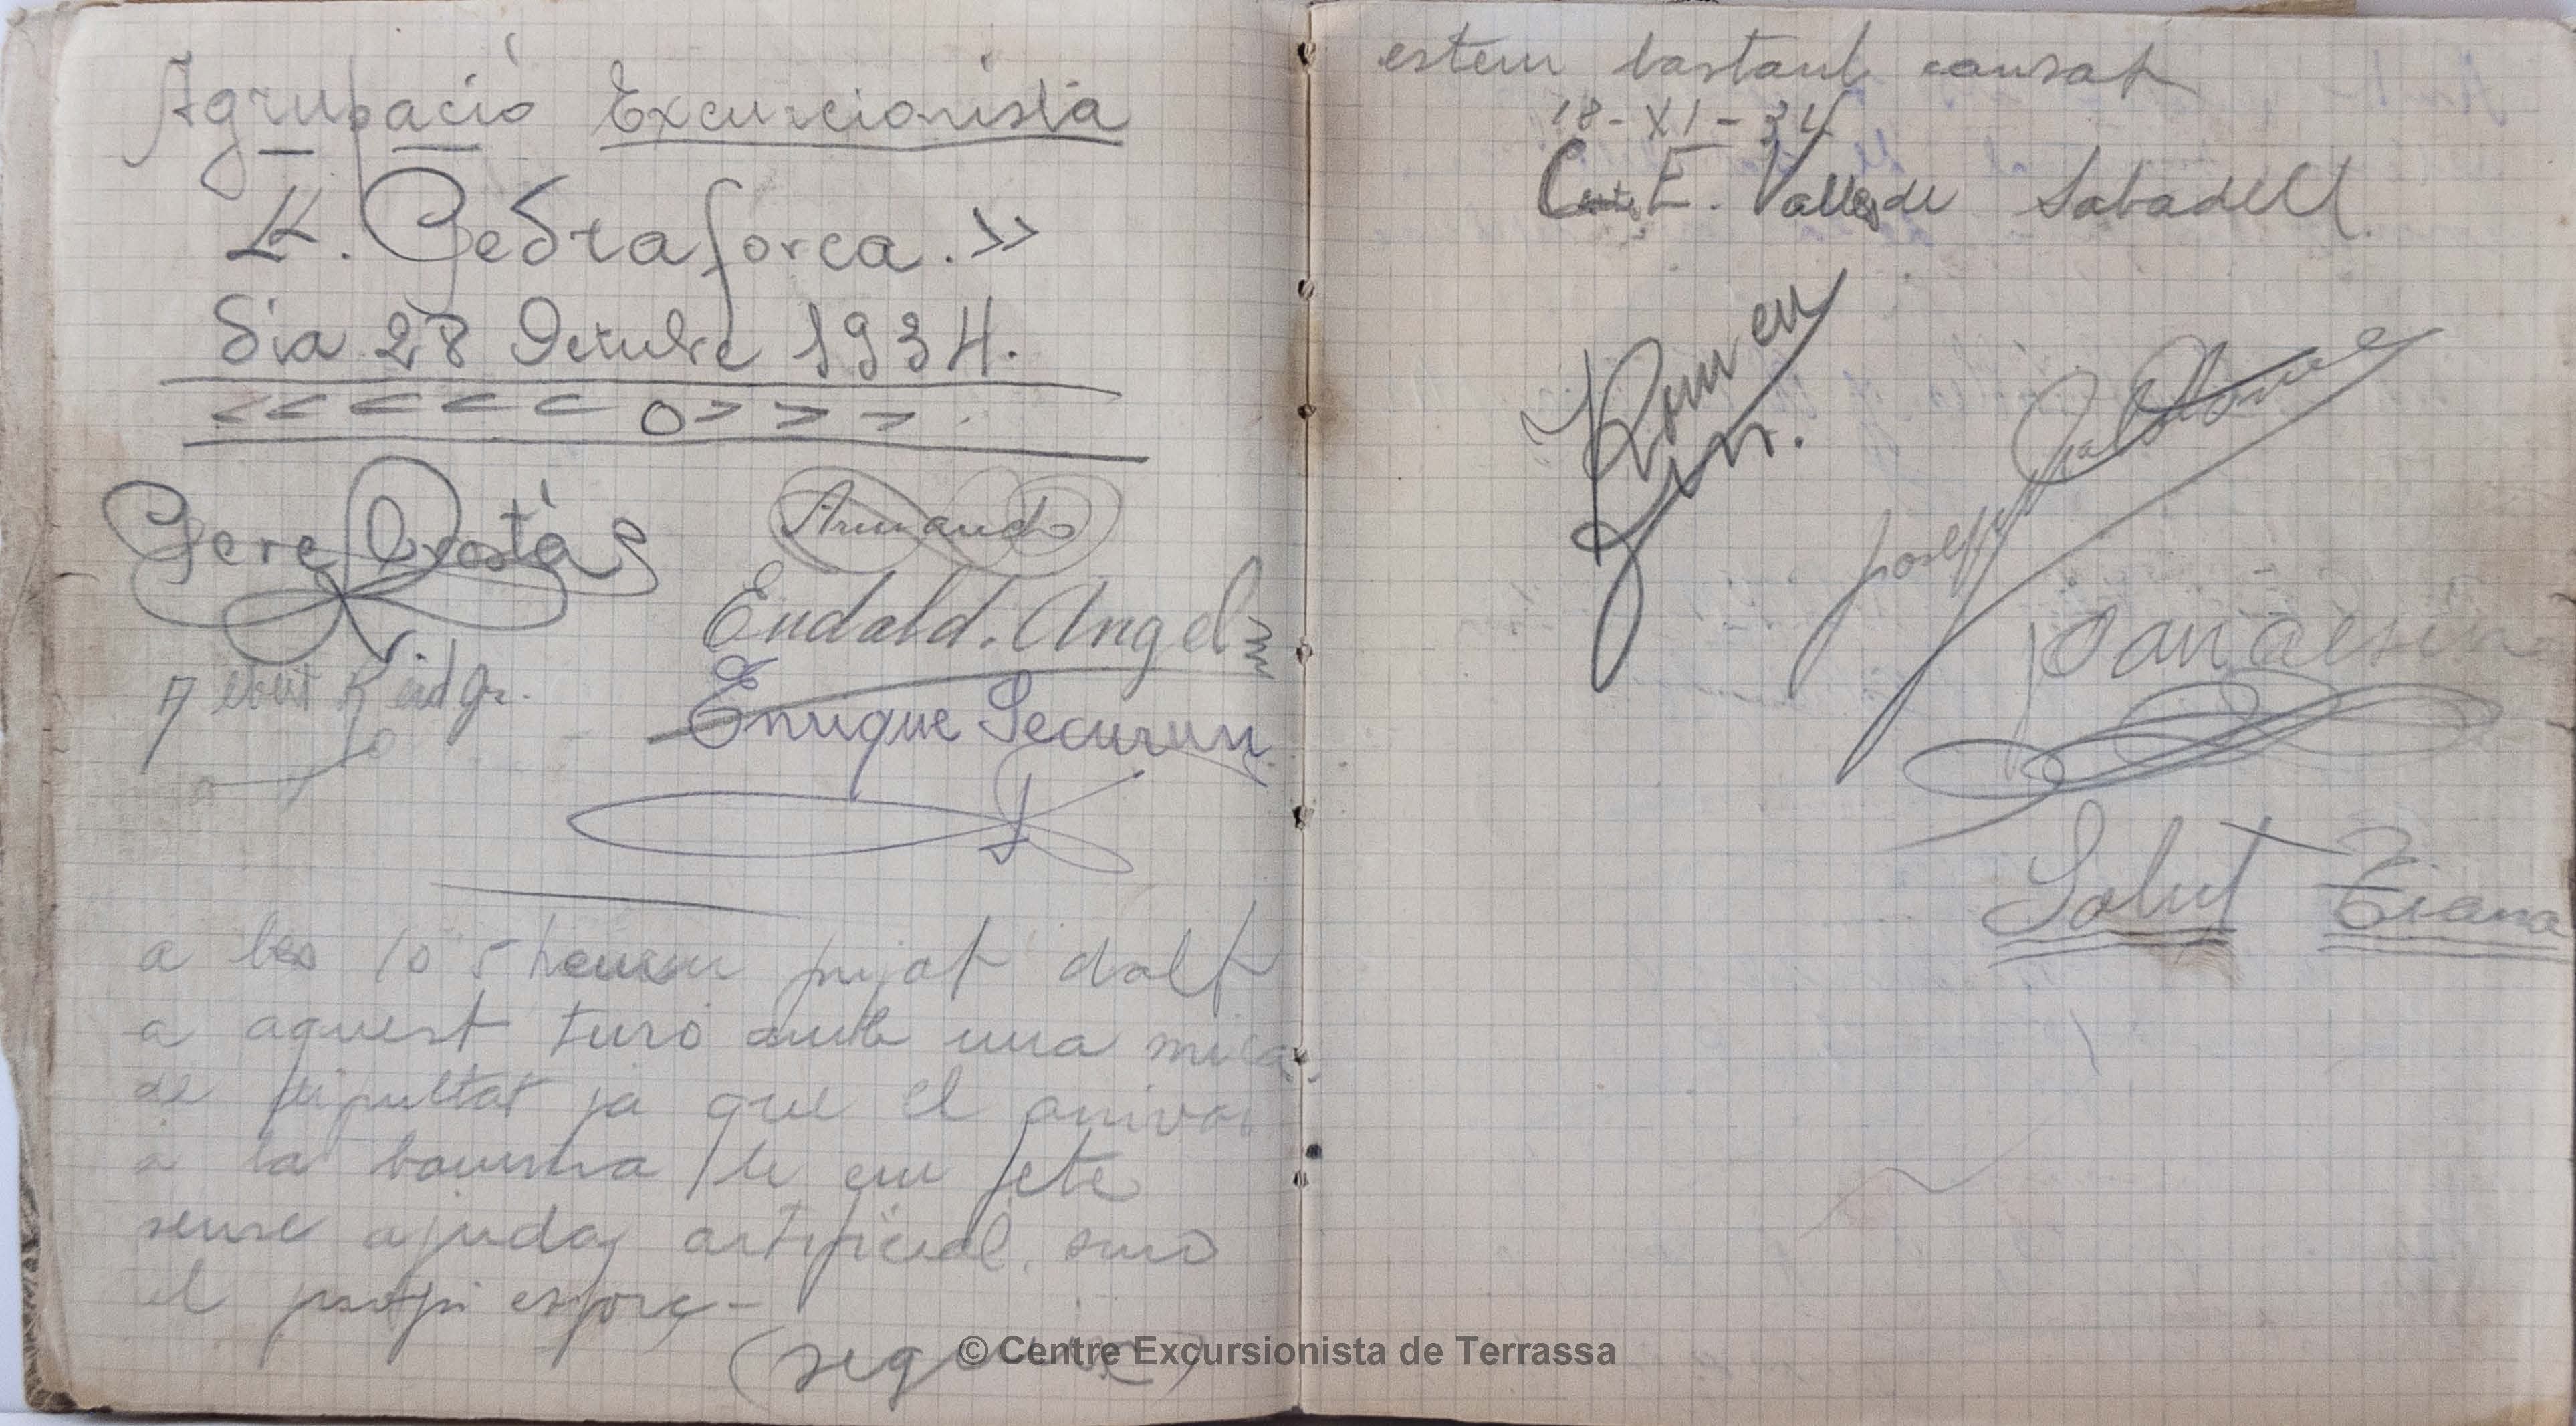 Agrupació Excurcionista
«. Pedraforca.»
Dia 28 Octubre 1934.
<<<<< O > > >
Pere Costa
Armando
Eudald. Angel
Enrique
a les 10 5 hem pujat dalt
a aquest turó amb una mica
de dipultat ja que el arrivar
a la bauma
sense ajuda artificial. sino
el propi esforç -
(seguix)
estem bastant cansat
18-XI-34
C. E. Valles de Sabadell.
Romeu
Josep
Joan alsina
Salut Tiana
© Centre Excursionista de Terrassa